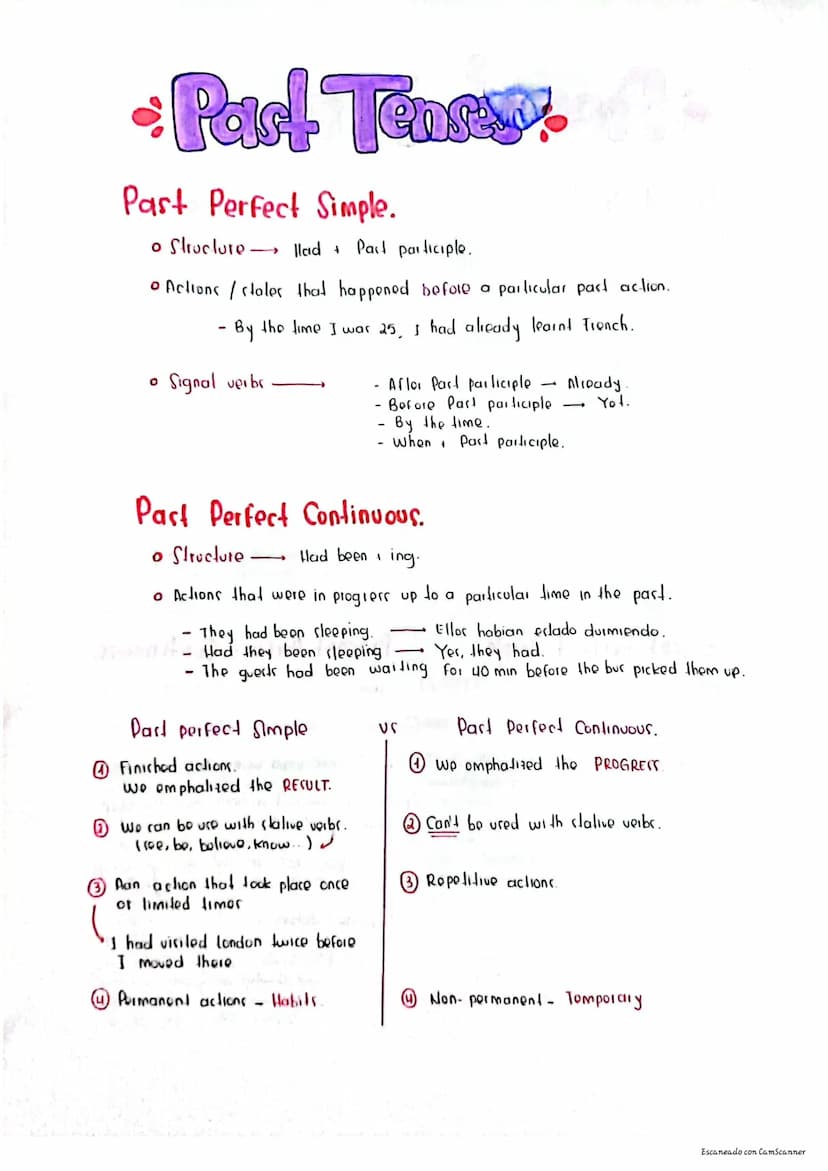 Past Tenses
Past Perfect Simple.
Structure → Had + Past participle.
Actions / states that happened before a particular past action.
- By the time I was 25, I had already learnt French.
Signal verbs → - After Past participle → Already.
- Before Past participle → Yet.
- By the time.
- When + Past participle.
Past Perfect Continuous.
Structure → Had been + ing.
Actions that were in progress up to a particular time in the past.
- They had been sleeping. → Ellos habian estado durmiendo.
- Had they been sleeping → Yes, they had.
- The guests had been waiting for 40 min before the bus picked them up.
Past perfect Simple vs Past Perfect Continuous.
① Finished actions.
We emphatized the RESULT.
② We can be use with stative verbs.
(see, be, believe, know...) ✓
③ Aan action that took place once
or limited times
I had visited london twice before
I moved there
④ Permanent actions - Habits.
① We emphatized the PROGRESS
② Can't be used with stative verbs.
③ Repetitive actions.
④ Non-permanent - Temporary
Escaneado con CamScanner